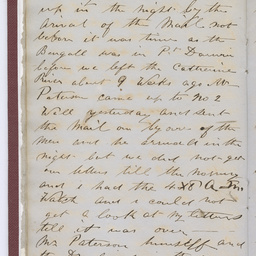 up in the night by the
arrival of the Mail not
before it was time as the
Bengall was in Pt Darwin
before we left the Catherine
River about 9 Weeks ago Mr
Paterson came up to No 2
Well yesterday and sent
the Mail on by one of the
men and he arrived in the
night but we did not get
our letters till the morning
and i had the 4 X 8
Watch and i could not
get a look at my letters
till it was over —
Mr Paterson himself and